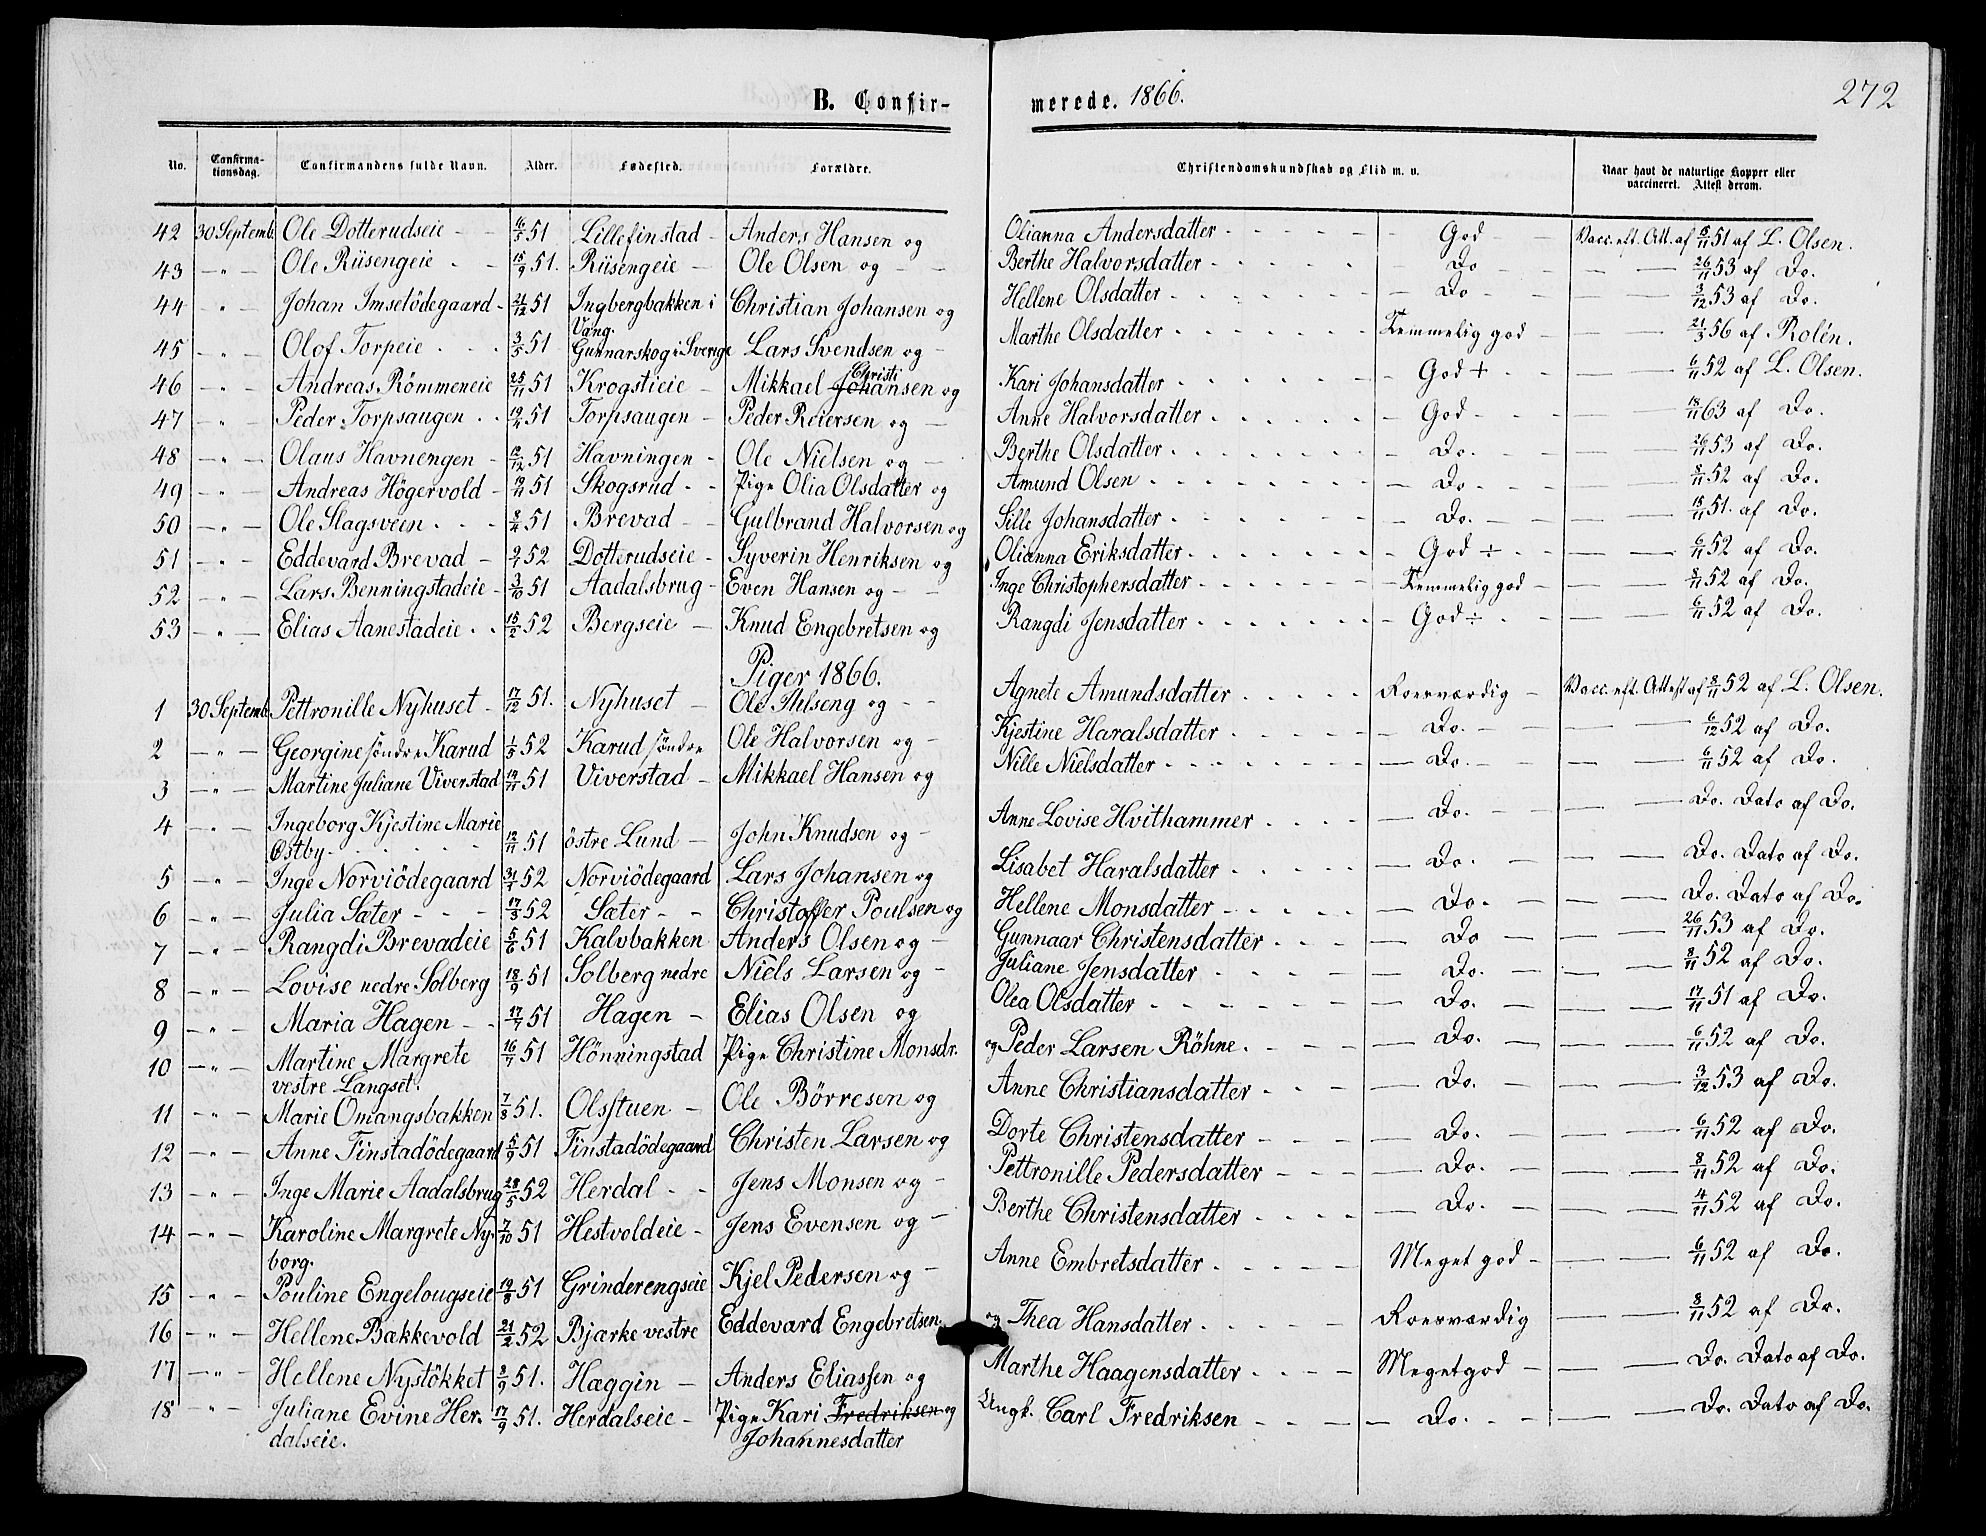 B. Confirmerede. 1866. 272
No. Confirmationsdag. Confirmandens fulde Navn. Alder. Fødested. Forældre. Christendomskundskab og Flid m. v. Naar havt de naturlige Kopper eller vaccineret. Attest derom.
42 30 Septemb. Ole Dotterudseie 16/5 51 Lillefinstad Anders Hansen og Olianna Andersdatter God Vacc. eft. Att. af 15/11 51 af L. Olsen.
43 " Ole Riisengeie 15/9 51. Riisengeie Ole Olsen og Berthe Halvorsdatter Do 26/11 53 af Do.
44 " Johan Imselödegaard 21/12 51 Ingbergbakken i Vang. Christian Johansen og Hellene Olsdatter Do 3/12 53 af Do.
45 " Olof Torpeie 3/5 51 Gunnarskog i Sverige Lars Svendsen og Marthe Olsdatter Temmelig god 21/3 56 af Rolén.
46 " Andreas Römmeneie 25/11 51 Krogstieie Mikkael Johansen Christi og Kari Johansdatter God + 6/11 52 af L. Olsen.
47 " Peder Torpsaugen 19/4 51 Torpsaugen Peder Reiersen og Anne Halvorsdatter God 18/11 63 af Do.
48 " Olaus Havnengen 12/12 51 Havningen Ole Nielsen og Berthe Olsdatter Do. 26/11 53 af Do.
49 " Andreas Högervold 19/11 51 Skogsrud Pige Olia Olsdatter og Amund Olsen Do. 8/11 52 af Do.
50 " Ole Slagsveen 8/4 51 Brevad Gulbrand Halvorsen og Sille Johansdatter Do. 15/11 51. af Do.
51 " Eddevard Brevad 2/1 52 Dotterudseie Syverin Henriksen og Olianna Eriksdatter God ÷ 6/11 52 af Do.
52 " Lars Benningstadeie 3/10 51 Aadalsbrug Even Hansen og Inge Christophersdatter Temmelig god 8/11 52 af Do.
53 " Elias Aanestadeie 15/2 52 Bergseie Knud Engebretsen og Rangdi Jensdatter God ÷ 6/11 52 af Do.
Piger 1866.
1 30 Septemb. Pettronille Nyhuset 17/12 51. Nyhuset Ole Ihlseng og Agnete Amundsdatter Roesværdig Vacc. eft. Attest af 8/11 52 af L. Olsen.
2 " Georgine söndre Karud 1/5 52 Karud söndre Ole Halvorsen og Kjestine Haralsdatter Do. 6/12 52 af Do.
3 " Martine Juliane Viverstad 19/11 51 Viverstad Mikkael Hansen og Nille Nielsdatter Do. 6/11 52 af Do.
4 " Ingeborg Kjestine Marie Østby 12/11 51 östre Lund John Knudsen og Anne Lovise Hvithammer Do. Do. Dato af Do.
5 " Inge Norviödegaard 31/1 52 Norviödegaard Lars Johansen og Lisabet Haralsdatter Do. Do. Dato af Do.
6 " Julia Sæter 17/3 52 Sæter Christoffer Poulsen og Hellene Monsdatter Do. Do. Dato af Do.
7 " Rangdi Brevadeie 5/6 51 Kalvbakken Anders Olsen og Gunnaar Christensdatter Do 26/11 53 af Do.
8 " Lovise nedre Solberg 18/9 51 Solberg nedre Niels Larsen og Juliane Jensdatter Do. 8/11 52 af Do.
9 " Maria Hagen 17/7 51 Hagen Elias Olsen og Olea Olsdatter Do. 17/11 51 af Do.
10 " Martine Margrete vestre Langset. 16/7 51 Hönningstad Pige Christine Monsdr. og Peder Larsen Röhne. Do. 6/11 52 af Do.
11 " Marie Omangsbakken 7/8 51. Olsstuen Ole Börresen og Anne Christiansdatter Do. 3/12 53 af Do.
12 " Anne Finstadödegaard 5/9 51 Finstadödegaard Christen Larsen og Dorte Christensdatter Do. 6/11 52 af Do.
13 " Inge Marie Aadalsbrug 28/5 52 Herdal Jens Monsen og Pettronille Pedersdatter Do. 8/11 52 af Do.
14 " Karoline Margrete Nyborg. 7/10 51 Hestvoldeie Jens Evensen og Berthe Christensdatter Do. 4/11 52 af Do.
15 " Pouline Engelougseie 19/8 51 Grinderengseie Kjel Pedersen og Anne Embretsdatter Meget god 6/11 52 af Do.
16 " Hellene Bakkevold 21/2 52 Bjærke vestre Eddevard Engebretsen og Thea Hansdatter Roesværdig 8/11 52 af Do.
17 " Hellene Nystökket 2/9 51. Hæggin Anders Eliassen og Marthe Haagensdatter Meget god Do. Dato af Do.
18 " Juliane Evine Herdalseie. 17/9 51. Herdalseie Pige Kari Fredriksen og Johannesdatter Ungk. Carl Fredriksen Do. Do. Dato af Do.